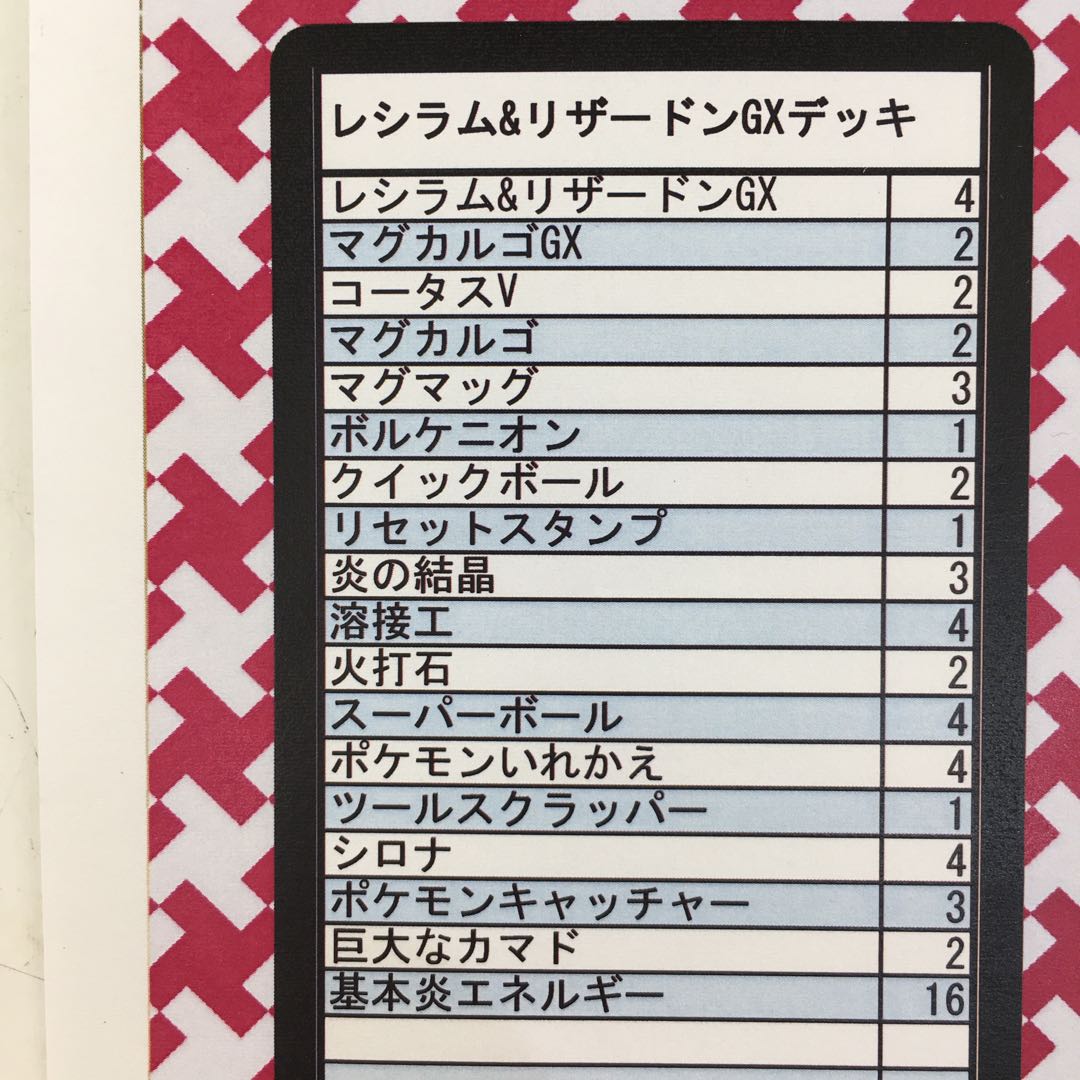 レシラム&リザードンGXデッキ
レシラム&リザードンGX 4
マグカルゴGX 2
コータスV 2
マグカルゴ 2
マグマッグ 3
ボルケニオン 1
クイックボール 2
リセットスタンプ 1
炎の結晶 3
溶接工 4
火打石 2
スーパーボール 4
ポケモンいれかえ 4
ツールスクラッパー 1
シロナ 4
ポケモンキャッチャー 3
巨大なカマド 2
基本炎エネルギー 16